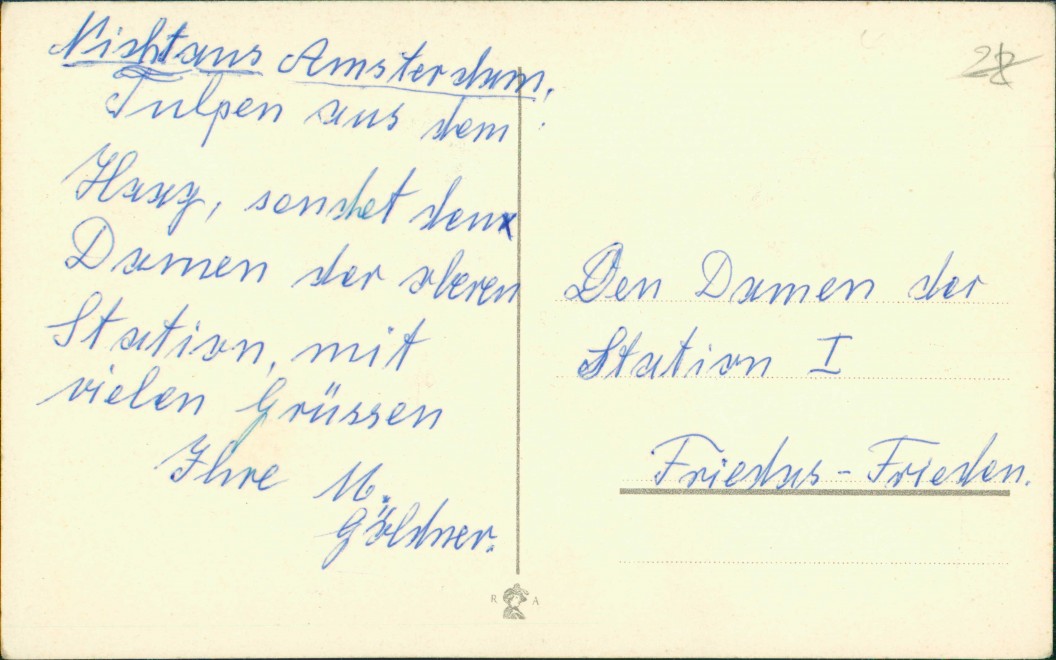 Nicht aus Amsterdam.
Tulpen aus dem
Haag, sendet den
Damen der oberen
Station, mit
vielen Grüssen
Ihre M.
Göldner.
28
Den Damen der
Station I
Friedas-Frieden.
R A